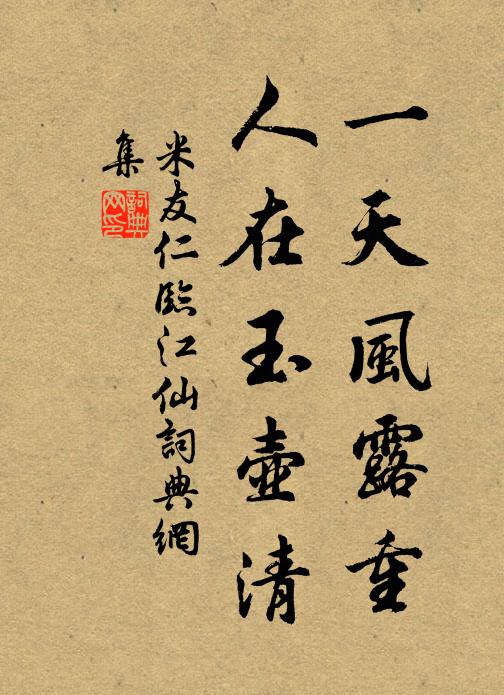 一天風露重
人在玉壺清
米友仁臨江仙詞典網
集
詞典
网印